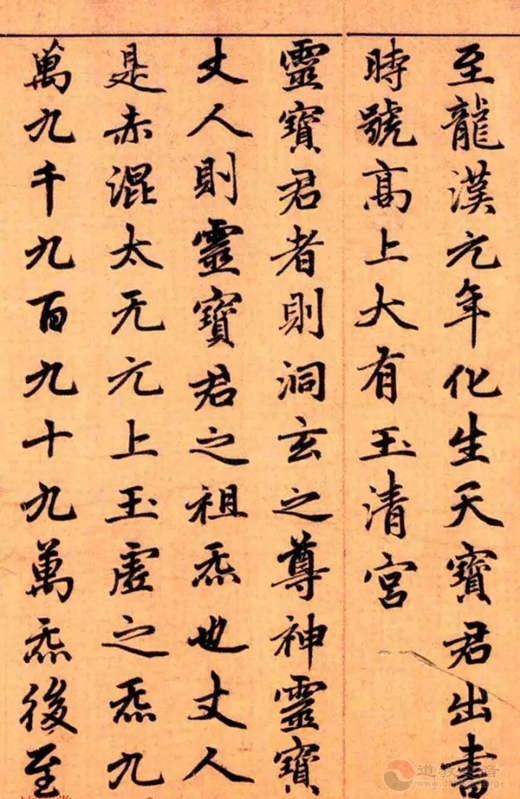 至龍漢元年化生天寶君出書
時號高上大有玉清宮
靈寶君者則洞玄之尊神靈寶
丈人則靈寶君之祖炁也丈人
是赤混太无元上玉虛之炁九
萬九千九百九十九萬炁後至